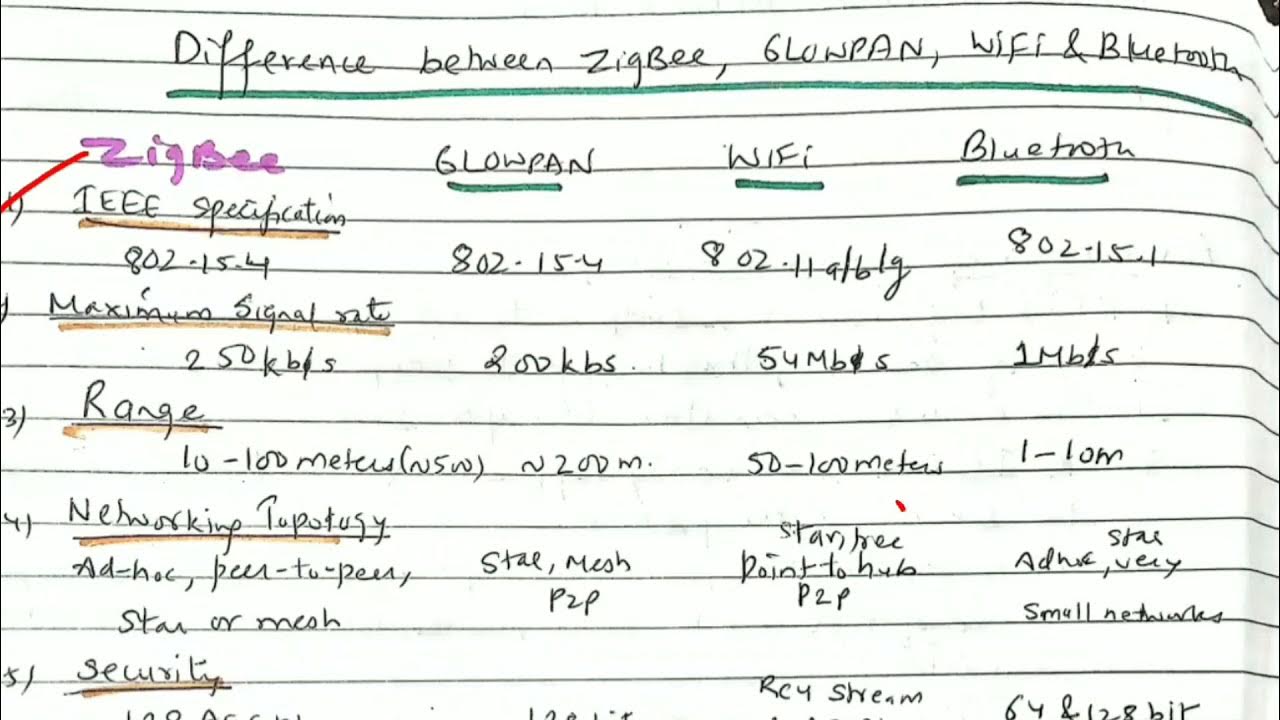 Difference between ZigBee, 6LOWPAN, WiFi & Bluetooth
ZigBee 6LOWPAN WIFi Bluetooth
1) IEEE Specification
802.15.4 802.15.4 802.11a/b/g 802.15.1
Maximum Signal rate
250kb/s 200kbs. 54Mb/s 1Mb/s
3) Range
10-100meters ~200m. 50-100meters 1-10m
4) Networking Topology
Ad-hoc, peer-to-peer, Star or mesh
Star, Mesh P2P
Star, tree Point to hub P2P
Star Adhoc, very Small networks
5) Security
RC4 Stream
64 & 128 bit